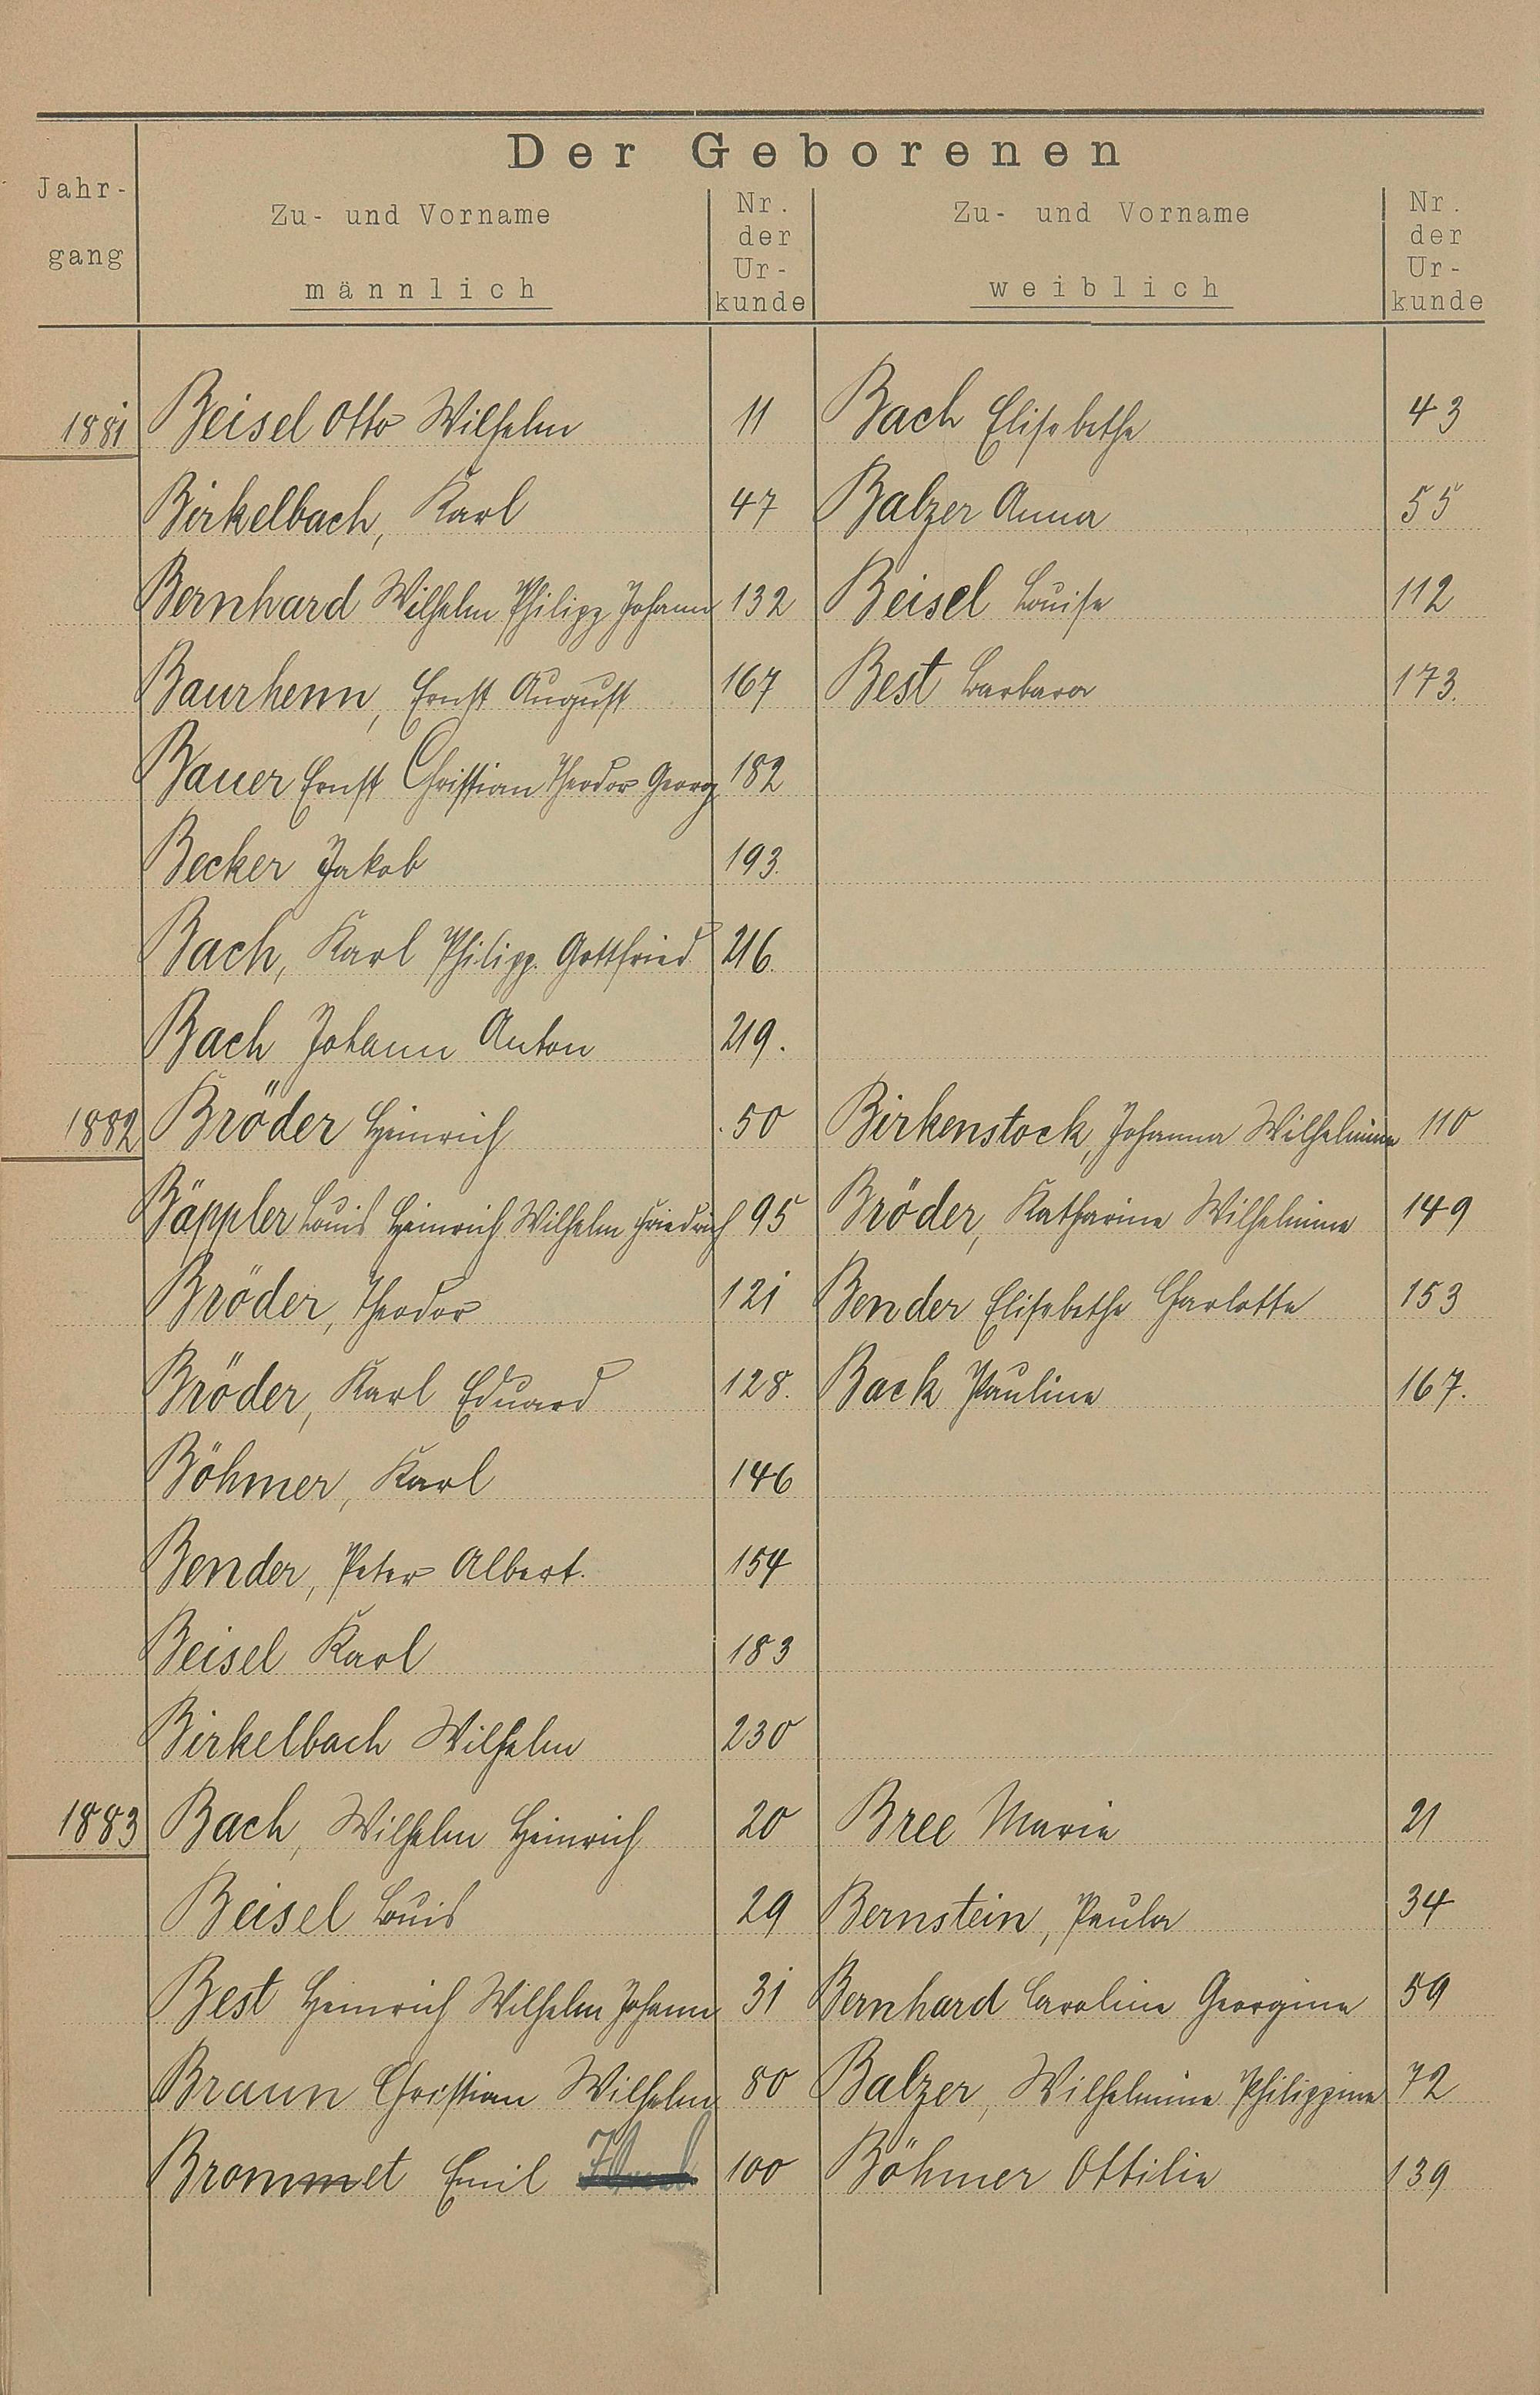 Der Geborenen
Jahr-
gang
Zu- und Vorname
männlich
Nr.
der
Ur-
kunde
Zu- und Vorname
weiblich
Nr.
der
Ur-
kunde
1881 Beisel Otto Wilhelm 11 Bach Elisabethe 43
Birkelbach, Karl 47 Balzer Anna 55
Bernhard Wilhelm Philipp Johann 132 Beisel Louise 112
Baurhenn, Ernst August 167 Best Barbara 173.
Bauer Ernst Christian Theodor Georg 182
Becker Jakob 193.
Bach, Karl Philipp Gottfried 216.
Bach Johann Anton 219.
1882 Bröder Heinrich 50 Birkenstock, Johanna Wilhelmine 110
Bäppler Louis Heinrich Wilhelm Friedrich 95 Bröder, Katharine Wilhelmine 149
Bröder, Theodor 121 Bender Elisabethe Charlotte 153
Bröder, Karl Eduard 128. Back Pauline 167.
Böhmer, Karl 146
Bender, Peter Albert. 154
Beisel Karl 183
Birkelbach Wilhelm 230
1883 Bach, Wilhelm Heinrich 20 Bree Marie 21
Beisel Louis 29 Bernstein, Paula 34
Best Heinrich Wilhelm Johann 31 Bernhard Caroline Georgine 59
Braun Christian Wilhelm 80 Balzer, Wilhelmine Philippine 72
Brommet Emil 100 Böhmer Ottilie 139